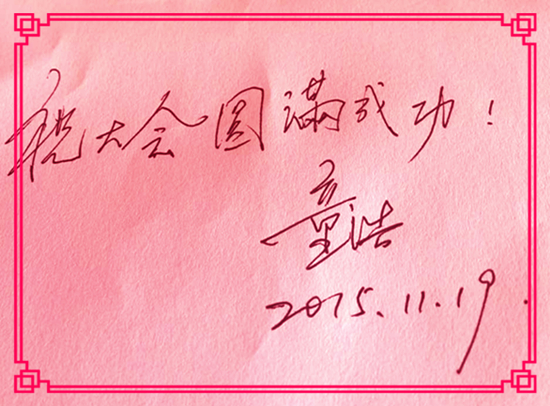 祝大会圆满成功!
童浩
2015.11.19.